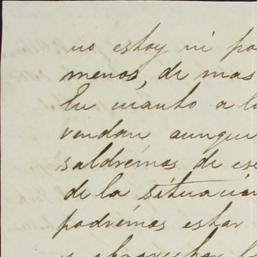 no estoy ni po
menos, de mas
En cuanto a lo
vendan aunque
saldrémos de es
de la situacion
podrémos estar